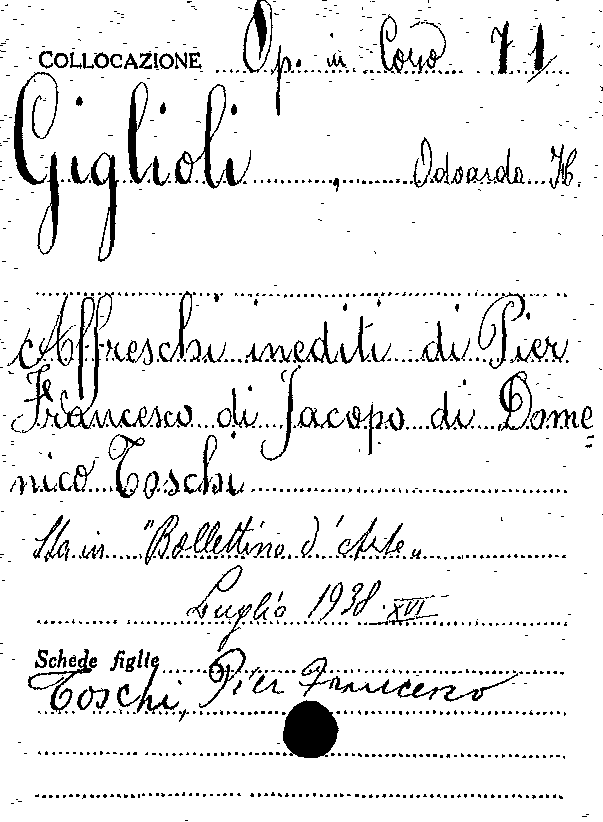 COLLOCAZIONE Op. in Corso 71
Giglioli, Odoardo H.
Affreschi inediti di Pier
Francesco di Jacopo di Dome
nico Toschi
Sta in "Bollettino d'Arte"
Luglio 1938-XVI
Schede figlie
Toschi, Pier Francesco